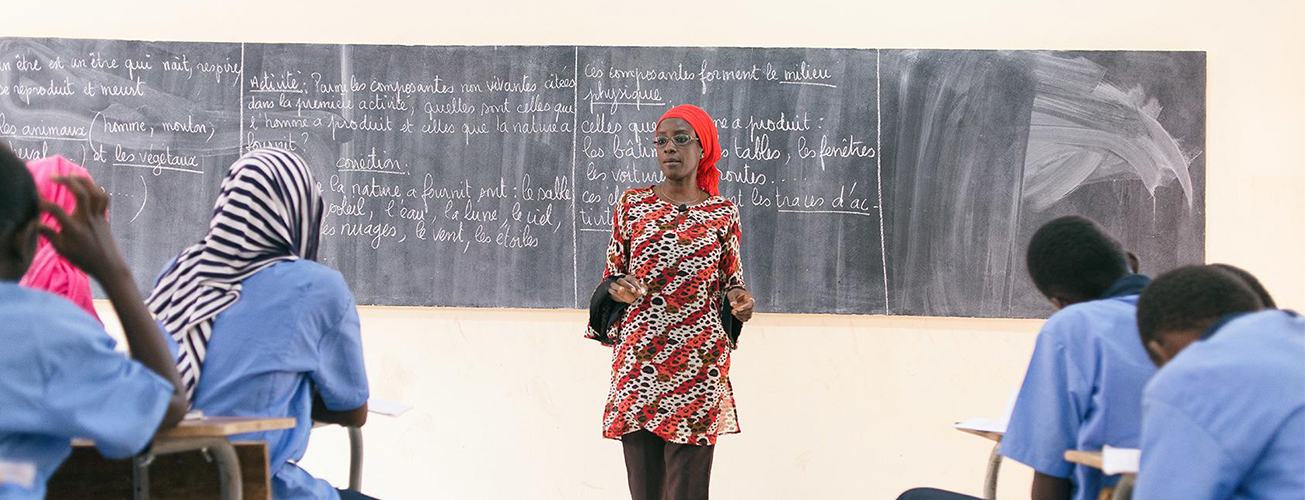 un être est un être qui naît, respire,
se reproduit et meurt
les animaux (homme, mouton,
) et les végétaux
Activité : Parmi les composantes non vivantes citées
dans la première activité, quelles sont celles que
l'homme a produit et celles que la nature a
fournit ?
correction :
la nature a fournit sont : le sable
soleil, l'eau, la lune, le ciel,
les nuages, le vent, les étoiles
Ces composantes forment le milieu
physique.
celles que a produit :
les tables, les fenêtres
les voitures
ces les traces d'ac-